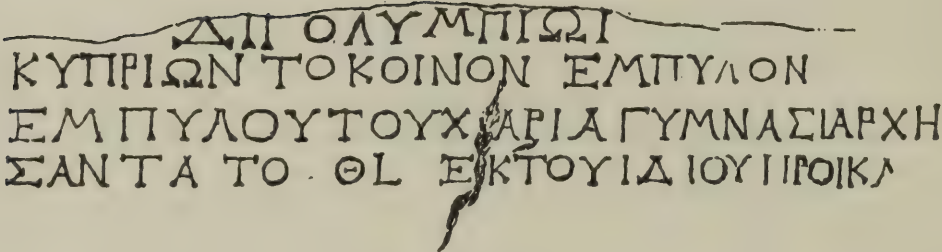 ΔΙΙ ΟΛΥΜΠΙΩΙ
ΚΥΠΡΙΩΝ ΤΟ ΚΟΙΝΟΝ ΕΜΠΥΛΟΝ
ΕΜΠΥΛΟΥ ΤΟΥ ΧΑΡΙΑ ΓΥΜΝΑΣΙΑΡΧΗ
ΣΑΝΤΑ ΤΟ · ΘL ΕΚ ΤΟΥ ΙΔΙΟΥ ΠΡΟΙΚΑ